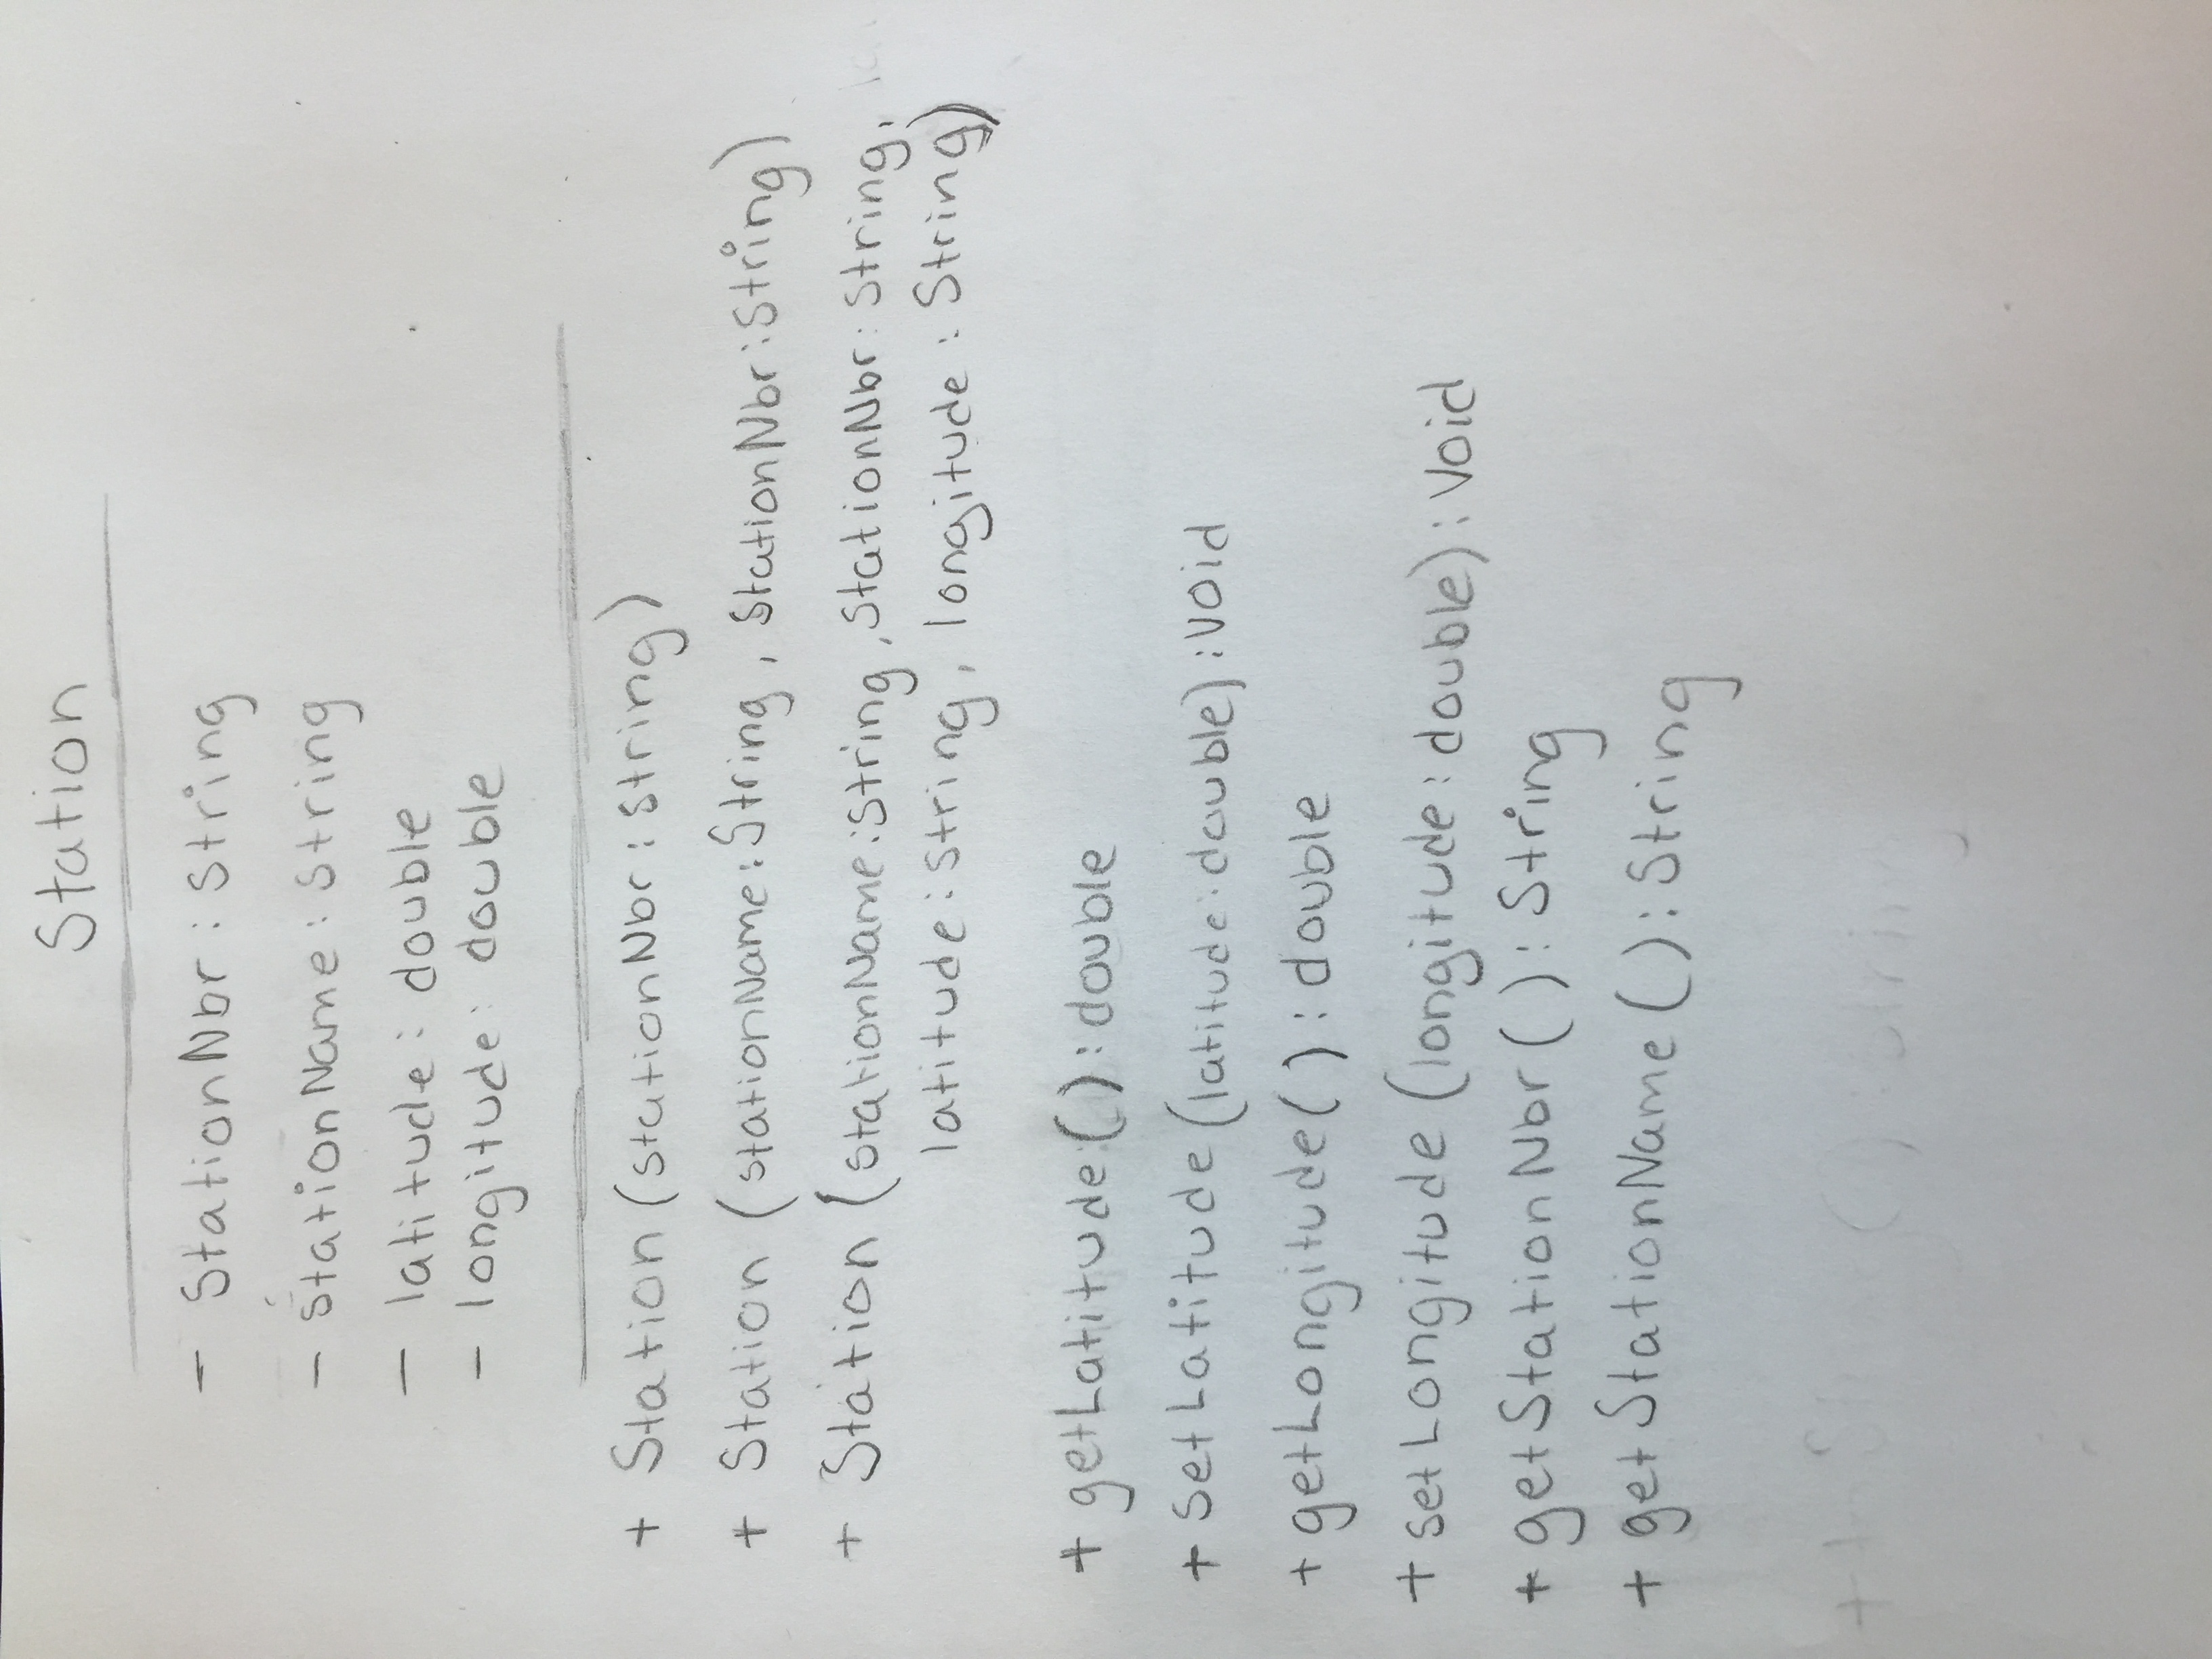 Station
- StationNbr : String
- stationName : String
- latitude : double
- longitude : double
+ Station (stationNbr : String)
+ Station (stationName : String, StationNbr : String)
+ Station (stationName : String, StationNbr : String,
latitude : String, longitude : String)
+ getLatitude() : double
+ setLatitude (latitude : double) : void
+ getLongitude() : double
+ setLongitude (longitude : double) : void
+ getStationNbr() : String
+ getStationName() : String
+ () : String